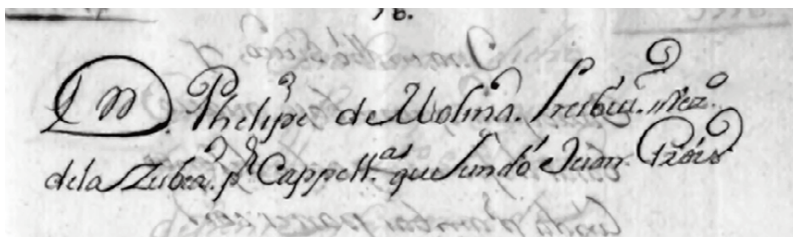 Dn. Phelipe de Molina. Presbitº. Vezº.
dela Zubia. pr. Cappell.as que fundó Juan